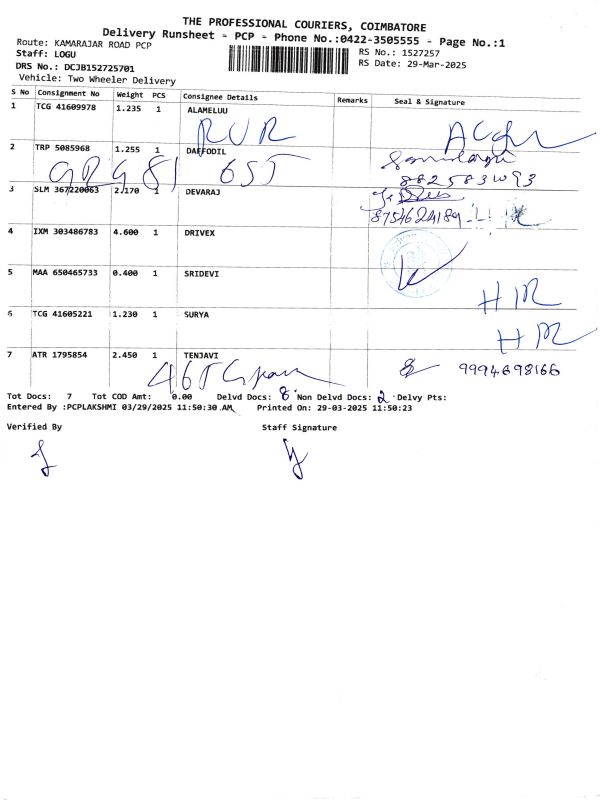 THE PROFESSIONAL COURIERS, COIMBATORE
Delivery Runsheet - PCP - Phone No.:0422-3505555 - Page No.:1
Route: KAMARAJAR ROAD PCP
Staff: LOGU
DRS No.: DCJB152725701
Vehicle: Two Wheeler Delivery
RS No.: 1527257
RS Date: 29-Mar-2025
S No Consignment No Weight PCS Consignee Details Remarks Seal & Signature
1 TCG 41609978 1.235 1 ALAMELUU
RUR
2 TRP 5085968 1.255 1 DAFFODIL
3 SLM 367220063 2.170 1 DEVARAJ
4 IXM 303486783 4.600 1 DRIVEX
5 MAA 650465733 0.400 1 SRIDEVI
HM
6 TCG 41605221 1.230 1 SURYA
HM
7 ATR 1795854 2.450 1 TENJAVI
9994698166
Tot Docs: 7 Tot COD Amt: 0.00 Delvd Docs: 8 Non Delvd Docs: 2 Delvy Pts:
Entered By :PCPLAKSHMI 03/29/2025 11:50:30 AM Printed On: 29-03-2025 11:50:23
Verified By Staff Signature